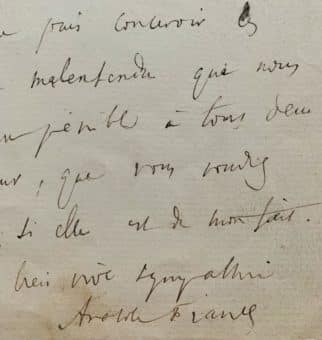 puis concevoir les
malentendu que nous
pénible à tous deux
que vous voudrez
si elle est de mon fait.
bien vive sympathie
Anatole France